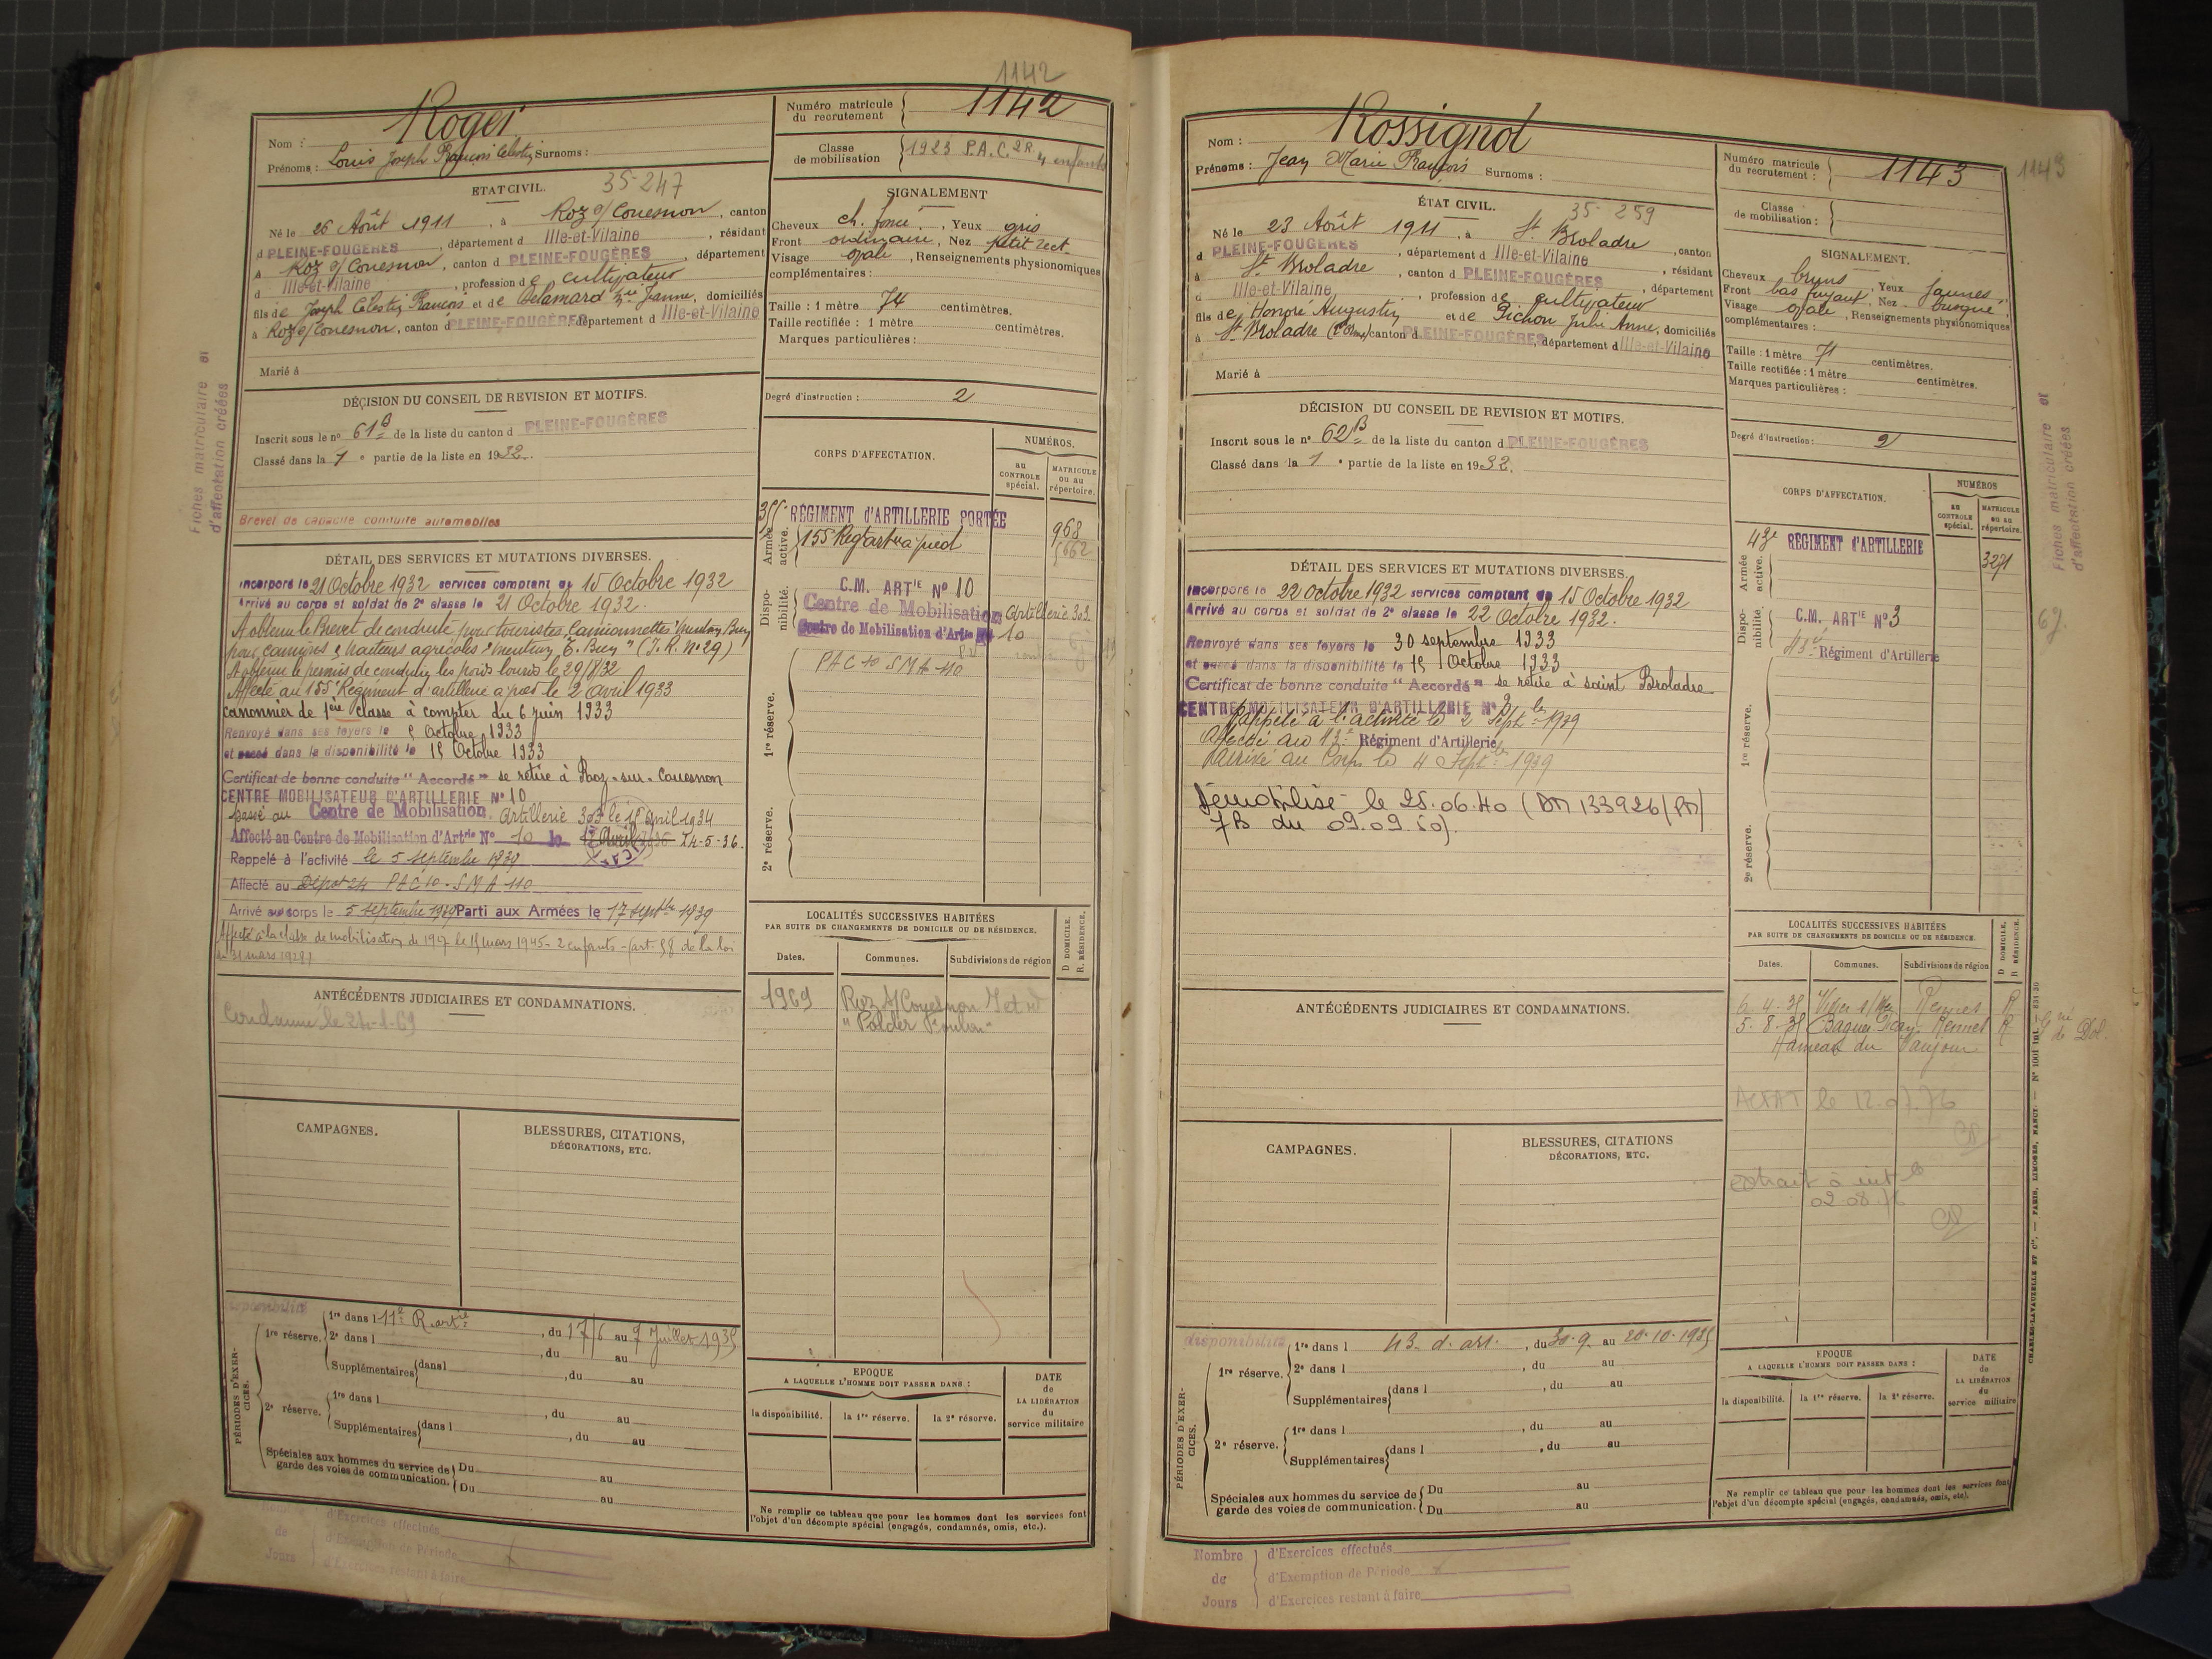 1142
Nom : Roger
Prénoms : Louis Joseph François Célestin Surnoms :
Numéro matricule du recrutement 1142
Classe de mobilisation 1923 P.A.C. 2R 4 enfants
ETAT CIVIL. 35-247
Né le 26 Août 1911, à Roz s/ Couesnon, canton
d PLEINE-FOUGÈRES, département d Ille-et-Vilaine, résidant
à Roz s/ Couesnon, canton d PLEINE-FOUGÈRES, département
d Ille-et-Vilaine, profession de cultivateur
fils de Joseph Célestin François et de Delamard Jeanne, domiciliés
à Roz s/ Couesnon, canton d PLEINE-FOUGÈRES département d Ille-et-Vilaine
Marié à
SIGNALEMENT
Cheveux ch. foncé, Yeux gris
Front ordinaire, Nez petit rect.
Visage ovale, Renseignements physionomiques
complémentaires :
Taille : 1 mètre 74 centimètres.
Taille rectifiée : 1 mètre centimètres.
Marques particulières :
Degré d'instruction : 2
DÉCISION DU CONSEIL DE REVISION ET MOTIFS.
Inscrit sous le n° 61 B de la liste du canton d PLEINE-FOUGÈRES
Classé dans la 1 e partie de la liste en 1932.
Brevet de capacité conduite automobiles
Fiches matriculaire et
d'affectation créées
CORPS D'AFFECTATION.
NUMÉROS.
au CONTROLE spécial.
MATRICULE ou au répertoire.
Armée active.
RÉGIMENT d'ARTILLERIE PORTÉE 968
155 Reg art à pied 5662
Disponibilité.
C.M. ARTIE N° 10
Centre de Mobilisation Artillerie 303
Centre de Mobilisation d'Artie N° 10
1re réserve.
PAC 10 SMA 110
2e réserve.
DÉTAIL DES SERVICES ET MUTATIONS DIVERSES.
Incorporé le 21 Octobre 1932 services comptant du 15 Octobre 1932
Arrivé au corps et soldat de 2e classe le 21 Octobre 1932.
A obtenu le Brevet de conduite pour touristes, Camionnettes
pour camions & tracteurs agricoles (I. R. N° 29)
A obtenu le permis de conduire les poids lourds le 29/8/32
Affecté au 155e Régiment d'artillerie à pied le 2 avril 1933
canonnier de 1ère classe à compter du 6 juin 1933
Renvoyé dans ses foyers le Octobre 1933
et passé dans la disponibilité le 15 Octobre 1933
Certificat de bonne conduite "Accordé" se retire à Roz-sur-Couesnon
CENTRE MOBILISATEUR D'ARTILLERIE N° 10
passé au Centre de Mobilisation Artillerie 303 le 18 avril 1934
Affecté au Centre de Mobilisation d'Artrie N° 10 le 14-5-36.
Rappelé à l'activité le 5 septembre 1939
Affecté au Dépôt 24 PAC 10 - SMA 110
Arrivé au corps le 5 septembre 1939 Parti aux Armées le 17 septbre 1939
Affecté à la classe de mobilisation de 1907 le 15 mars 1945 - 2 enfants - (art. 58 de la loi
du 31 mars 1928)
ANTÉCÉDENTS JUDICIAIRES ET CONDAMNATIONS.
LOCALITÉS SUCCESSIVES HABITÉES
PAR SUITE DE CHANGEMENTS DE DOMICILE OU DE RÉSIDENCE.
Dates. Communes. Subdivisions de région D DOMICILE. R. RÉSIDENCE.
1969 Roz s/ Couesnon
"Polder Foulon"
CAMPAGNES.
BLESSURES, CITATIONS,
DÉCORATIONS, ETC.
disponibilité
PÉRIODES D'EXERCICES.
1re réserve. 1re dans l 11e R. artie, du 17/6 au 7 Juillet 1935
2e dans l, du au
Supplémentaires dans l, du au
2e réserve. 1re dans l, du au
Supplémentaires dans l, du au
Spéciales aux hommes du service de garde des voies de communication. Du au
Du au
EPOQUE
A LAQUELLE L'HOMME DOIT PASSER DANS :
la disponibilité. la 1re réserve. la 2e réserve.
DATE de LA LIBÉRATION du service militaire
Ne remplir ce tableau que pour les hommes dont les services font
l'objet d'un décompte spécial (engagés, condamnés, omis, etc.).
de
Jours
d'Exercices effectués
d'Exemption de Période
d'Exercices restant à faire
Nom : Rossignol
Prénoms : Jean Marie François Surnoms :
Numéro matricule du recrutement : 1143
1143
Classe de mobilisation :
ÉTAT CIVIL. 35-259
Né le 23 Août 1911, à St Broladre, canton
d PLEINE-FOUGÈRES, département d Ille-et-Vilaine, résidant
à St Broladre, canton d PLEINE-FOUGÈRES, département
d Ille-et-Vilaine, profession de cultivateur
fils de Honoré Augustin et de Pichon Julie Anne, domiciliés
à St Broladre canton d PLEINE-FOUGÈRES, département d Ille-et-Vilaine
Marié à
SIGNALEMENT.
Cheveux bruns, Yeux jaunes,
Front bas fuyant, Nez busqué,
Visage ovale, Renseignements physionomiques
complémentaires :
Taille : 1 mètre 71 centimètres.
Taille rectifiée : 1 mètre centimètres.
Marques particulières :
Degré d'instruction : 2
DÉCISION DU CONSEIL DE REVISION ET MOTIFS.
Inscrit sous le n° 62 B de la liste du canton d PLEINE-FOUGÈRES
Classé dans la 1 e partie de la liste en 1932.
Fiches matriculaire et
d'affectation créées
CORPS D'AFFECTATION.
NUMÉROS
au CONTROLE spécial.
MATRICULE ou au répertoire.
Armée active.
43e RÉGIMENT d'ARTILLERIE 3271
Disponibilité.
C.M. ARTIE N° 3
Régiment d'Artillerie
1re réserve.
2e réserve.
DÉTAIL DES SERVICES ET MUTATIONS DIVERSES.
Incorporé le 22 octobre 1932 services comptant du 15 Octobre 1932
Arrivé au corps et soldat de 2e classe le 22 Octobre 1932.
Renvoyé dans ses foyers le 30 septembre 1933
et passé dans la disponibilité le 15 Octobre 1933
Certificat de bonne conduite "Accordé" se retire à saint Broladre
CENTRE MOBILISATEUR D'ARTILLERIE N° 3
Rappelé à l'activité le 2 Septbre 1939
Affecté au Régiment d'Artillerie
Arrivé au Corps le 4 Septbre 1939
Démobilisé le 25.06.40 (DM 133926/PM/
7B du 09.09.50).
ANTÉCÉDENTS JUDICIAIRES ET CONDAMNATIONS.
LOCALITÉS SUCCESSIVES HABITÉES
PAR SUITE DE CHANGEMENTS DE DOMICILE OU DE RÉSIDENCE.
Dates. Communes. Subdivisions de région D DOMICILE. R RÉSIDENCE.
6-4-35 Rennes R
5-8-35 Baguer-Pican Rennes R
Hameau du
le 12.07.76
extrait
02.08.76
CAMPAGNES.
BLESSURES, CITATIONS
DÉCORATIONS, ETC.
disponibilité
PÉRIODES D'EXERCICES.
1re réserve. 1re dans l 43e d'art., du 30-9 au 20-10-1935
2e dans l, du au
Supplémentaires dans l, du au
2e réserve. 1re dans l, du au
Supplémentaires dans l, du au
Spéciales aux hommes du service de garde des voies de communication. Du au
Du au
EPOQUE
A LAQUELLE L'HOMME DOIT PASSER DANS :
la disponibilité. la 1re réserve. la 2e réserve.
DATE de LA LIBÉRATION du service militaire
Ne remplir ce tableau que pour les hommes dont les services font
l'objet d'un décompte spécial (engagés, condamnés, omis, etc.).
CHARLES-LAVAUZELLE ET Cie. — PARIS, LIMOGES, NANCY. —
Nombre de Jours
d'Exercices effectués
d'Exemption de Période
d'Exercices restant à faire